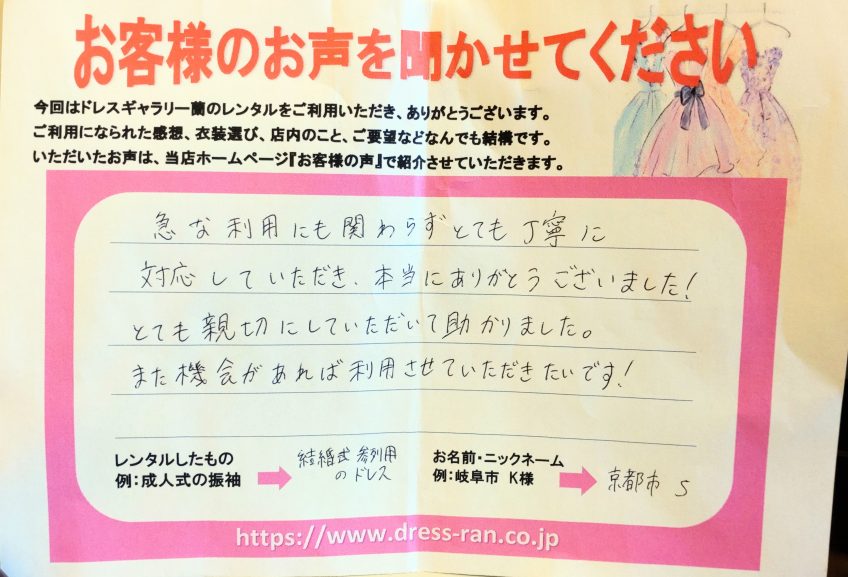 お客様のお声を聞かせてください
今回はドレスギャラリー蘭のレンタルをご利用いただき、ありがとうございます。
ご利用になられた感想、衣装選び、店内のこと、ご要望などなんでも結構です。
いただいたお声は、当店ホームページ『お客様の声』で紹介させていただきます。
急な利用にも関わらずとても丁寧に
対応していただき、本当にありがとうございました!
とても親切にしていただいて助かりました。
また機会があれば利用させていただきたいです!
レンタルしたもの
例:成人式の振袖
結婚式参列用
のドレス
お名前・ニックネーム
例:岐阜市 K様
京都市 S
https://www.dress-ran.co.jp